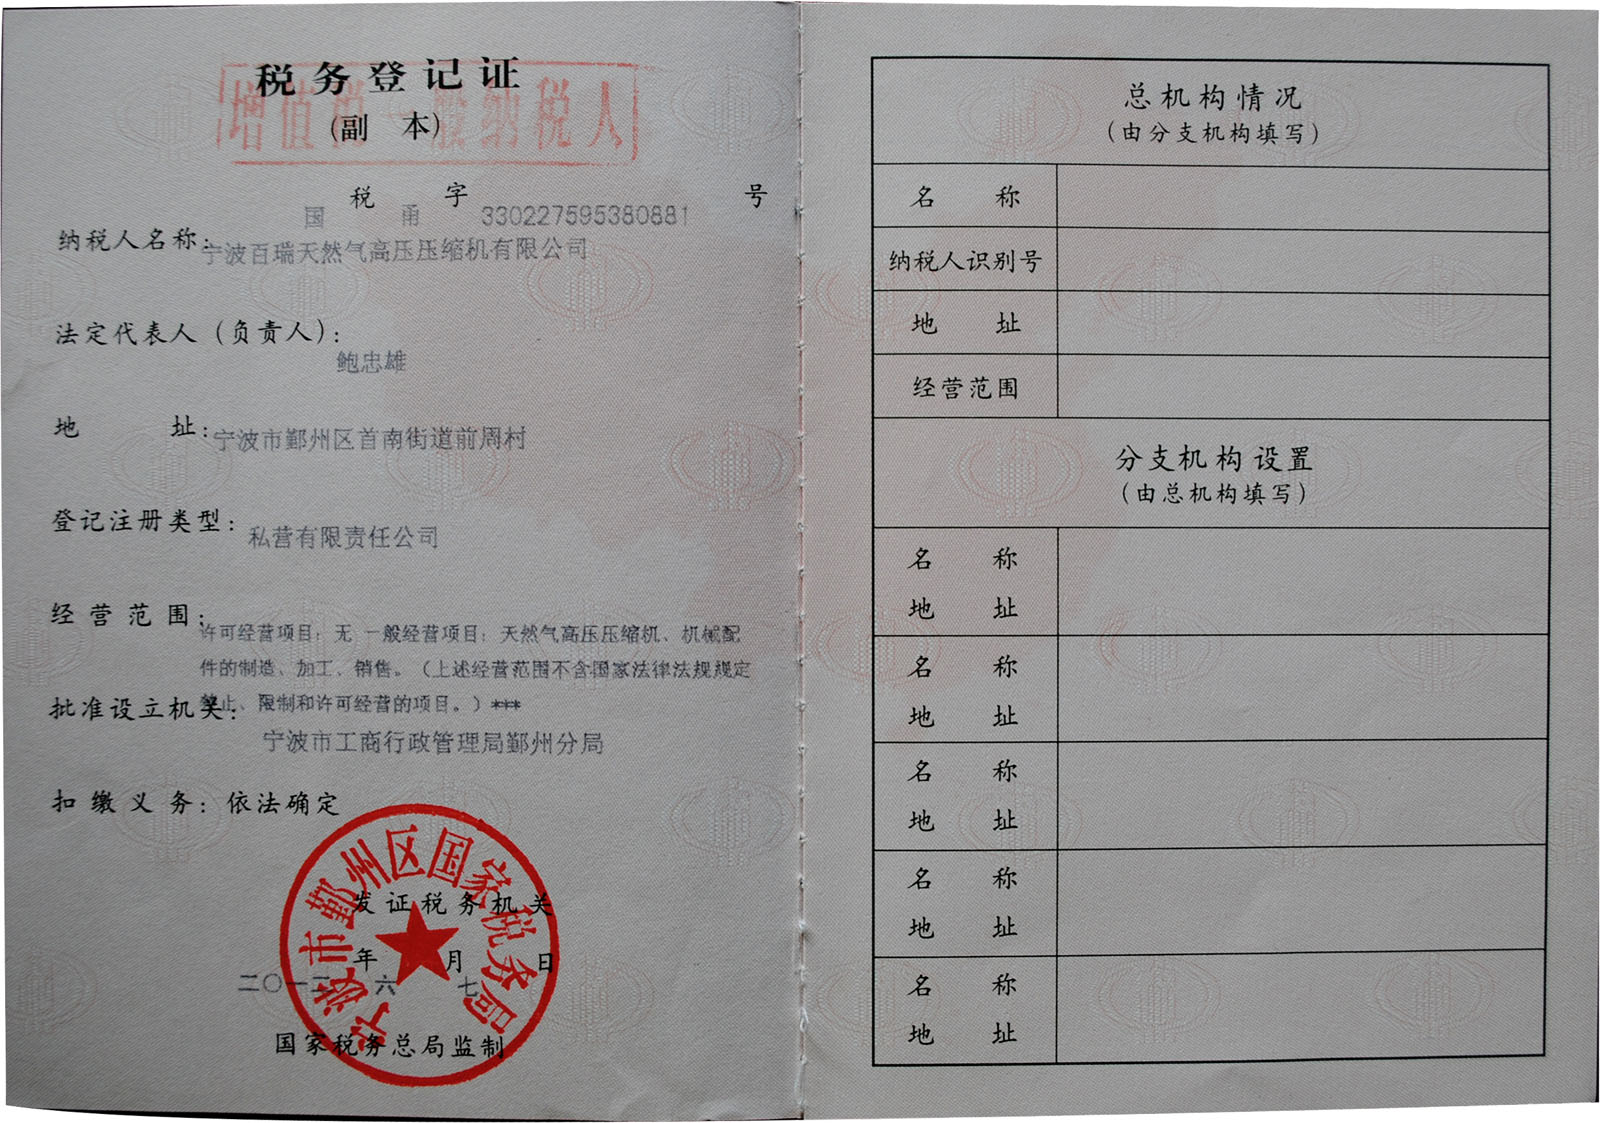 税务登记证
增值税一般纳税人
(副 本)
税 字 号
国 甬 330227595380881
纳税人名称:
宁波百瑞天然气高压压缩机有限公司
法定代表人（负责人）:
鲍忠雄
地 址:
宁波市鄞州区首南街道前周村
登记注册类型:
私营有限责任公司
经营范围:
许可经营项目: 无 一般经营项目: 天然气高压压缩机、机械配
件的制造、加工、销售。（上述经营范围不含国家法律法规规定
禁止、限制和许可经营的项目。）***
批准设立机关:
宁波市工商行政管理局鄞州分局
扣缴义务: 依法确定
宁波市鄞州区国家税务局
发证税务机关
年 月 日
二〇一二 六 七
国家税务总局监制
总机构情况
（由分支机构填写）
名 称
纳税人识别号
地 址
经营范围
分支机构设置
（由总机构填写）
名 称
地 址
名 称
地 址
名 称
地 址
名 称
地 址
名 称
地 址